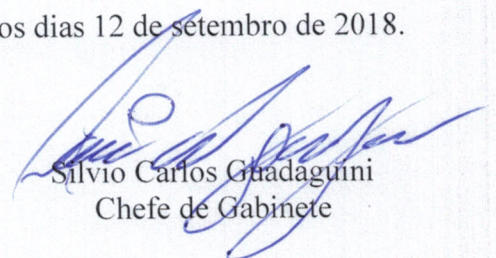 os dias 12 de setembro de 2018.
Silvio Carlos Guadaguini
Chefe de Gabinete